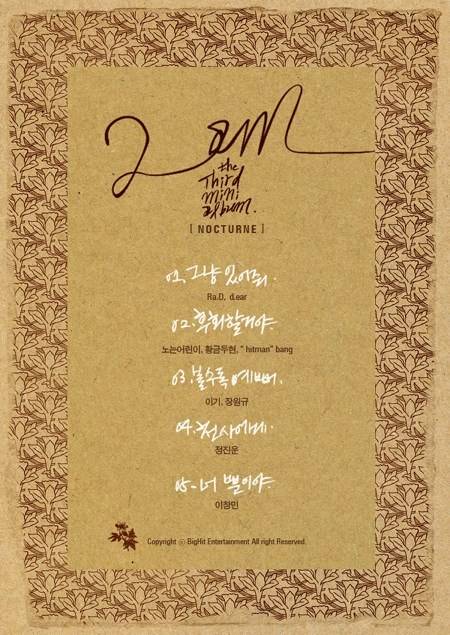 2am
the
Third
mini
album.
[ NOCTURNE ]
01. 그냥 있어줘.
Ra.D, d.ear
02. 후회할거야.
노는어린이, 황금두현, “ hitman” bang
03. 볼수록 예뻐.
이기, 장원규
04. 천사에게.
정진운
05 - 너 뿐이야.
이창민
Copyright ⓒ BigHit Entertainment All right Reserved.